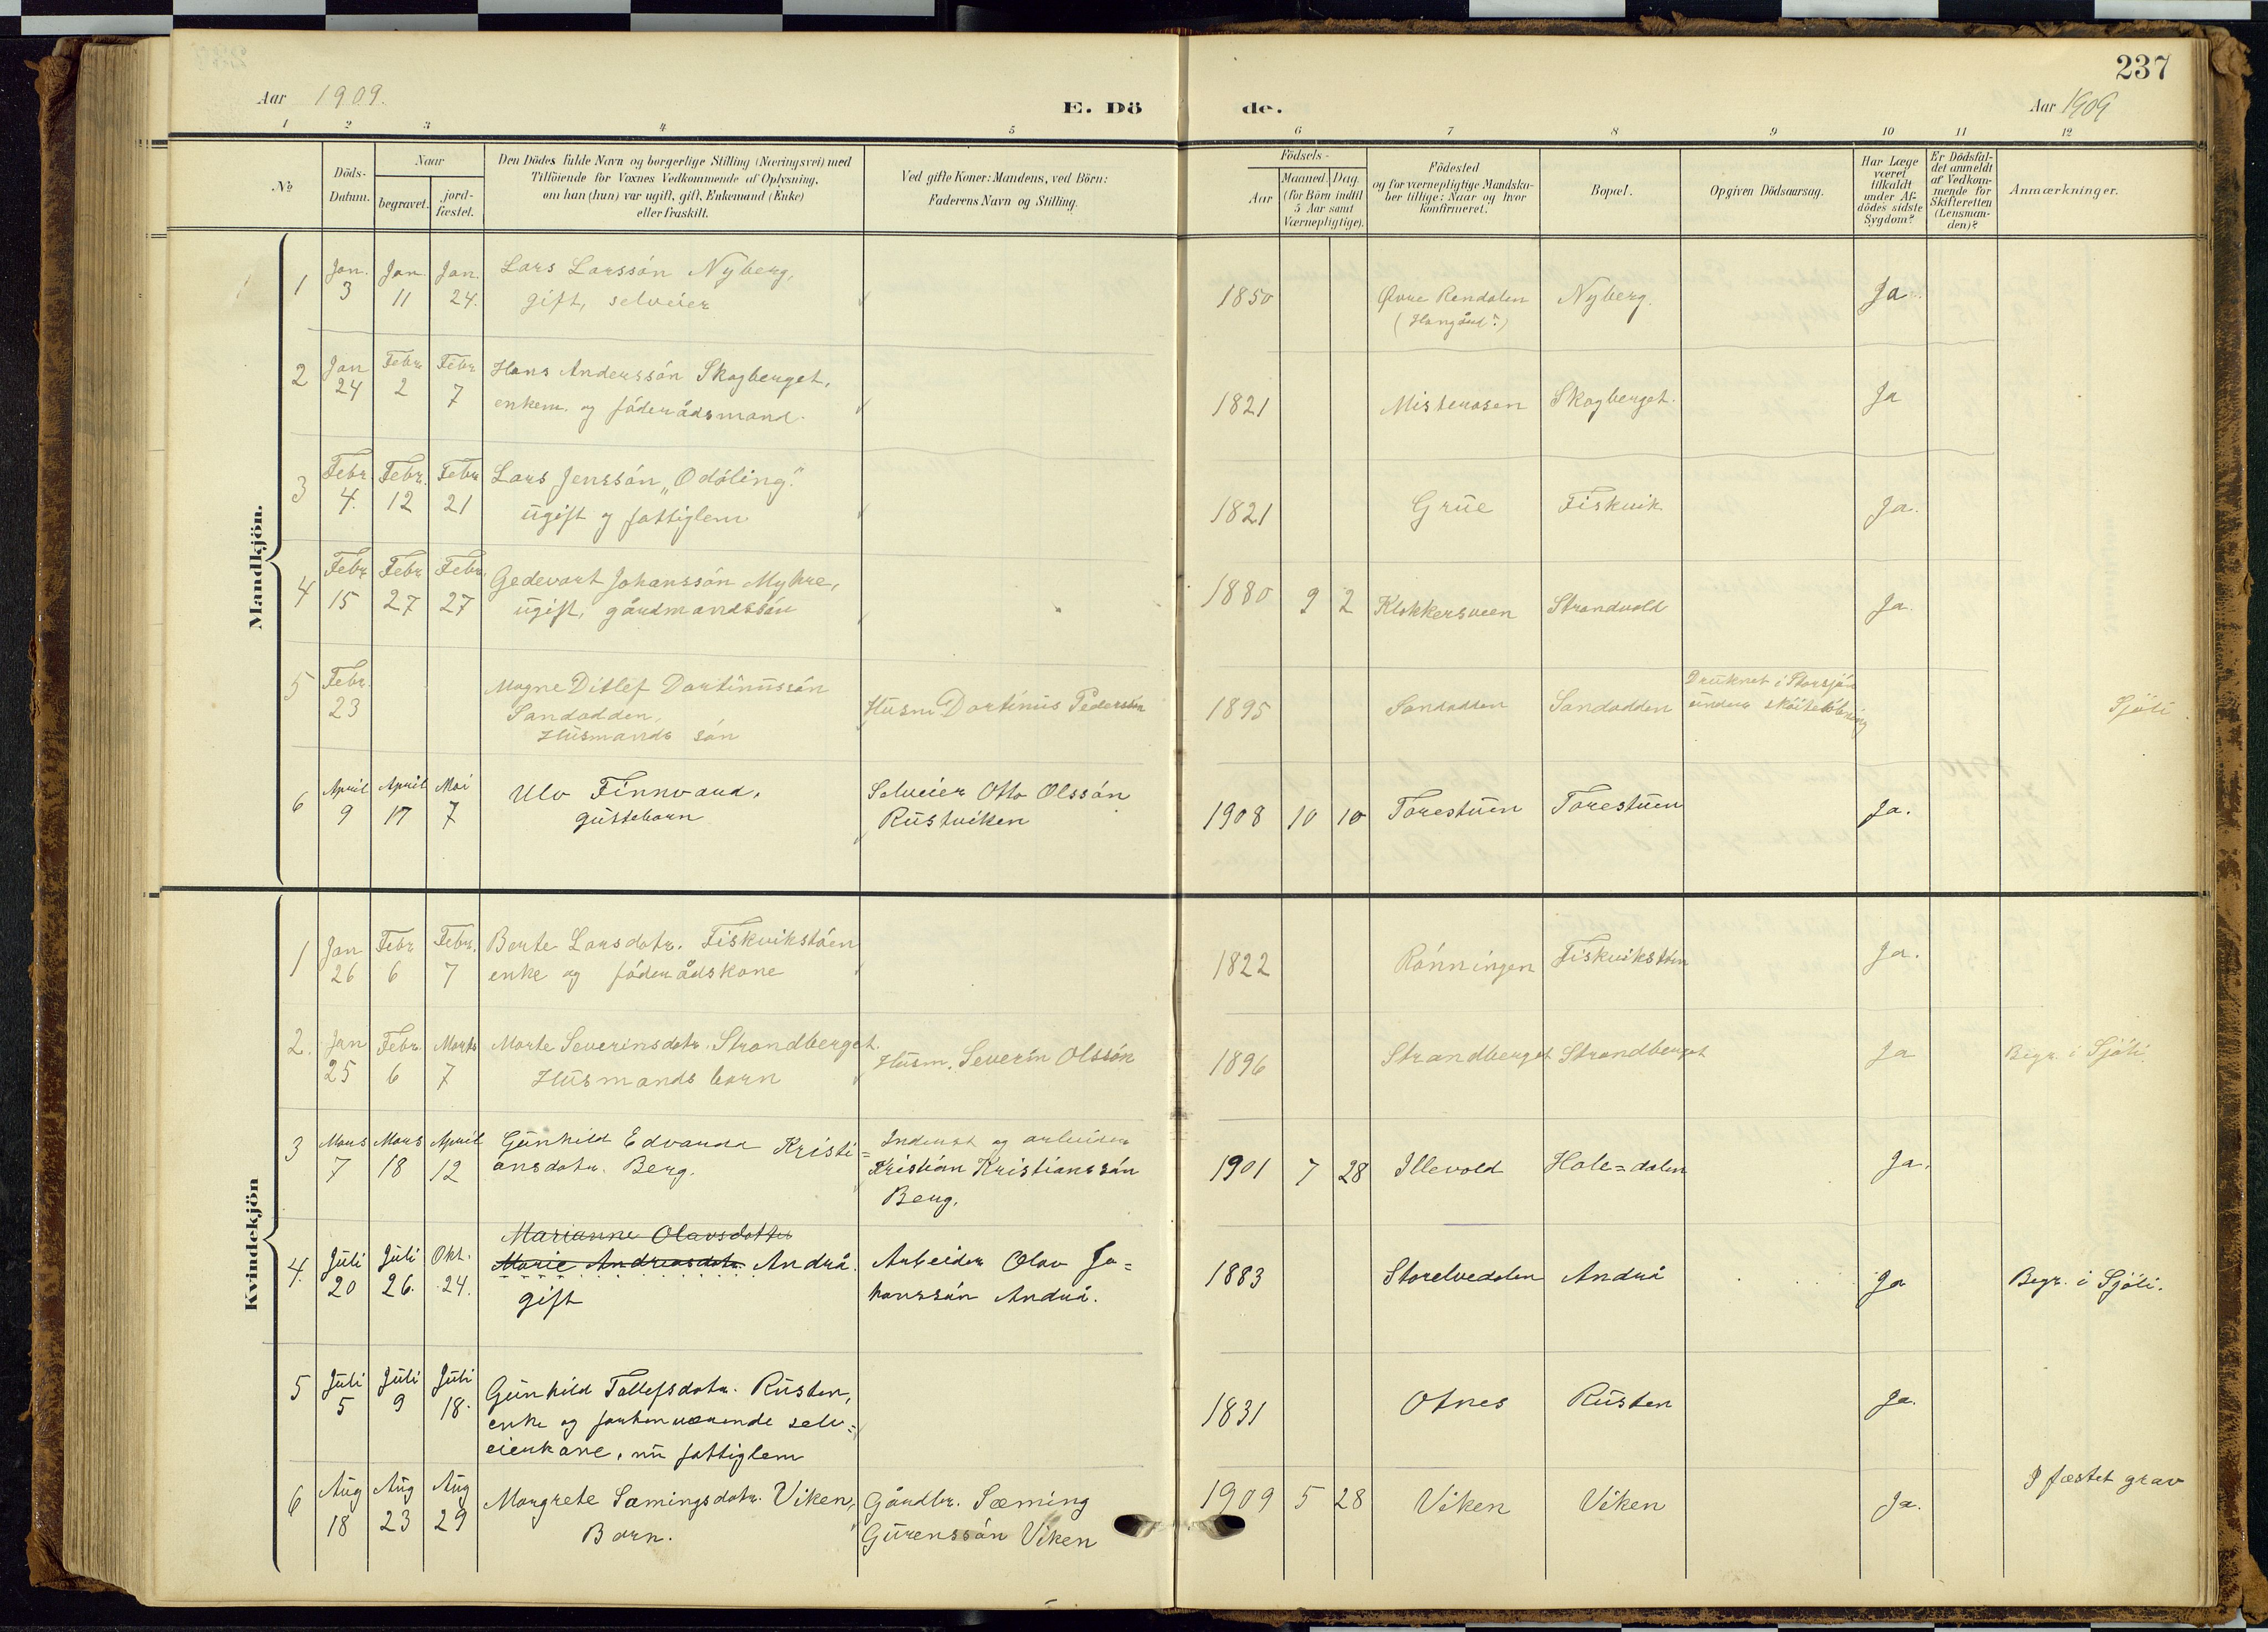 237
Aar 1909.
E. Dö
de.
Aar 1909
1 2 3 4 5
6 7 8 9 10 11 12
No
Döds-
Datum.
Naar
begravet.
jord-
fæstet.
Den Dödes fulde Navn og borgerlige Stilling (Næringsvei) med
Tilföiende for Voxnes Vedkommende af Oplysning,
om han (hun) var ugift, gift, Enkemand (Enke)
eller fraskilt.
Ved gifte Koner: Mandens, ved Börn:
Faderens Navn og Stilling.
Födsels-
Aar
Maaned. Dag.
(for Börn indtil
5 Aar samt
Værnepligtige).
Födested
og for værnepligtige Mandska-
ber tillige: Naar og hvor
konfirmeret.
Bopæl.
Opgiven Dödsaarsag.
Har Læge
været
tilkaldt
under Af-
dödes sidste
Sygdom?
Er Dödsfal-
det anmeldt
af Vedkom-
mende for
Skifteretten
(Lensman-
den)?
Anmærkninger.
Mandkjön.
1 Jan. Jan. Jan. Lars Larssön Nyberg,
3 11 24. gift, selveier
1850 Øvre Rendalen Nyberg. Ja.
2 Jan Febr Febr Hans Anderssön Skogberget,
24 2 7 enkem. og föderådsmand.
1821 Misterosen Skogberget. Ja
3 Febr. Febr. Febr Lars Jenssön „Odöling."
4. 12 21 ugift og fattiglem
1821 Grue Fiskvik. Ja.
4 Febr. Febr Febr. Gedevart Johanssön Myhre,
15 27 27 ugift, gårdmandssön
1880 9 2 Klokkersveen Strandvold Ja.
5 Febr. Magne Ditlef Dortinussön
23 Sandodden, Husm Dortinus Pederssön
Husmands sön
1895 Sandodden Sandodden Druknet i Storsjön
under skøiteløbning Sjöli
6 April April Mai Ulv Finnvard, Selveier Otto Olssön
9 17 7 gutteborn Rustviken
1908 10 10 Torestuen Torestuen Ja.
Kvindekjön
1 Jan Febr Febr. Berte Larsdotr. Fiskvikstöen
26 6 7 enke og föderådskone
1822 Rönningen Fiskvikstöen Ja.
2. Jan Febr. Marts Marte Severinsdotr. Strandberget.
25 6 7 Husmands born Husm. Severin Olssön
1896 Strandberget Strandberget Ja Begr. i Sjöli.
3 Mars Mars April Gunhild Edvarda Kristi= Inderst og arbeider
7 18 12 ansdotr. Berg. Kristian Kristianssön
Berg.
1901 7 28 Illevold Hole=dalen Ja.
Marianne Olavsdotter
4. Juli Juli Okt. Marie Andreasdotr. Andrå. Arbeider Olav Jo=
20 26. 24. gift hanssön Andrå.
1883 Storelvedalen Andrå Ja Begr. i Sjöli.
5 Juli Juli Juli Gunhild Tollefsdotr. Rusten,
5 9 18. enke og forhenværende selv=
eierkone, nu fattiglem
1831 Otnes Rusten Ja.
6 Aug Aug Aug Margrete Sæmingsdotr. Viken, Gårdbr. Sæming
18 23 29 Born. Gurenssön Viken
1909 5 28 Viken Viken Ja. I fæstet grav